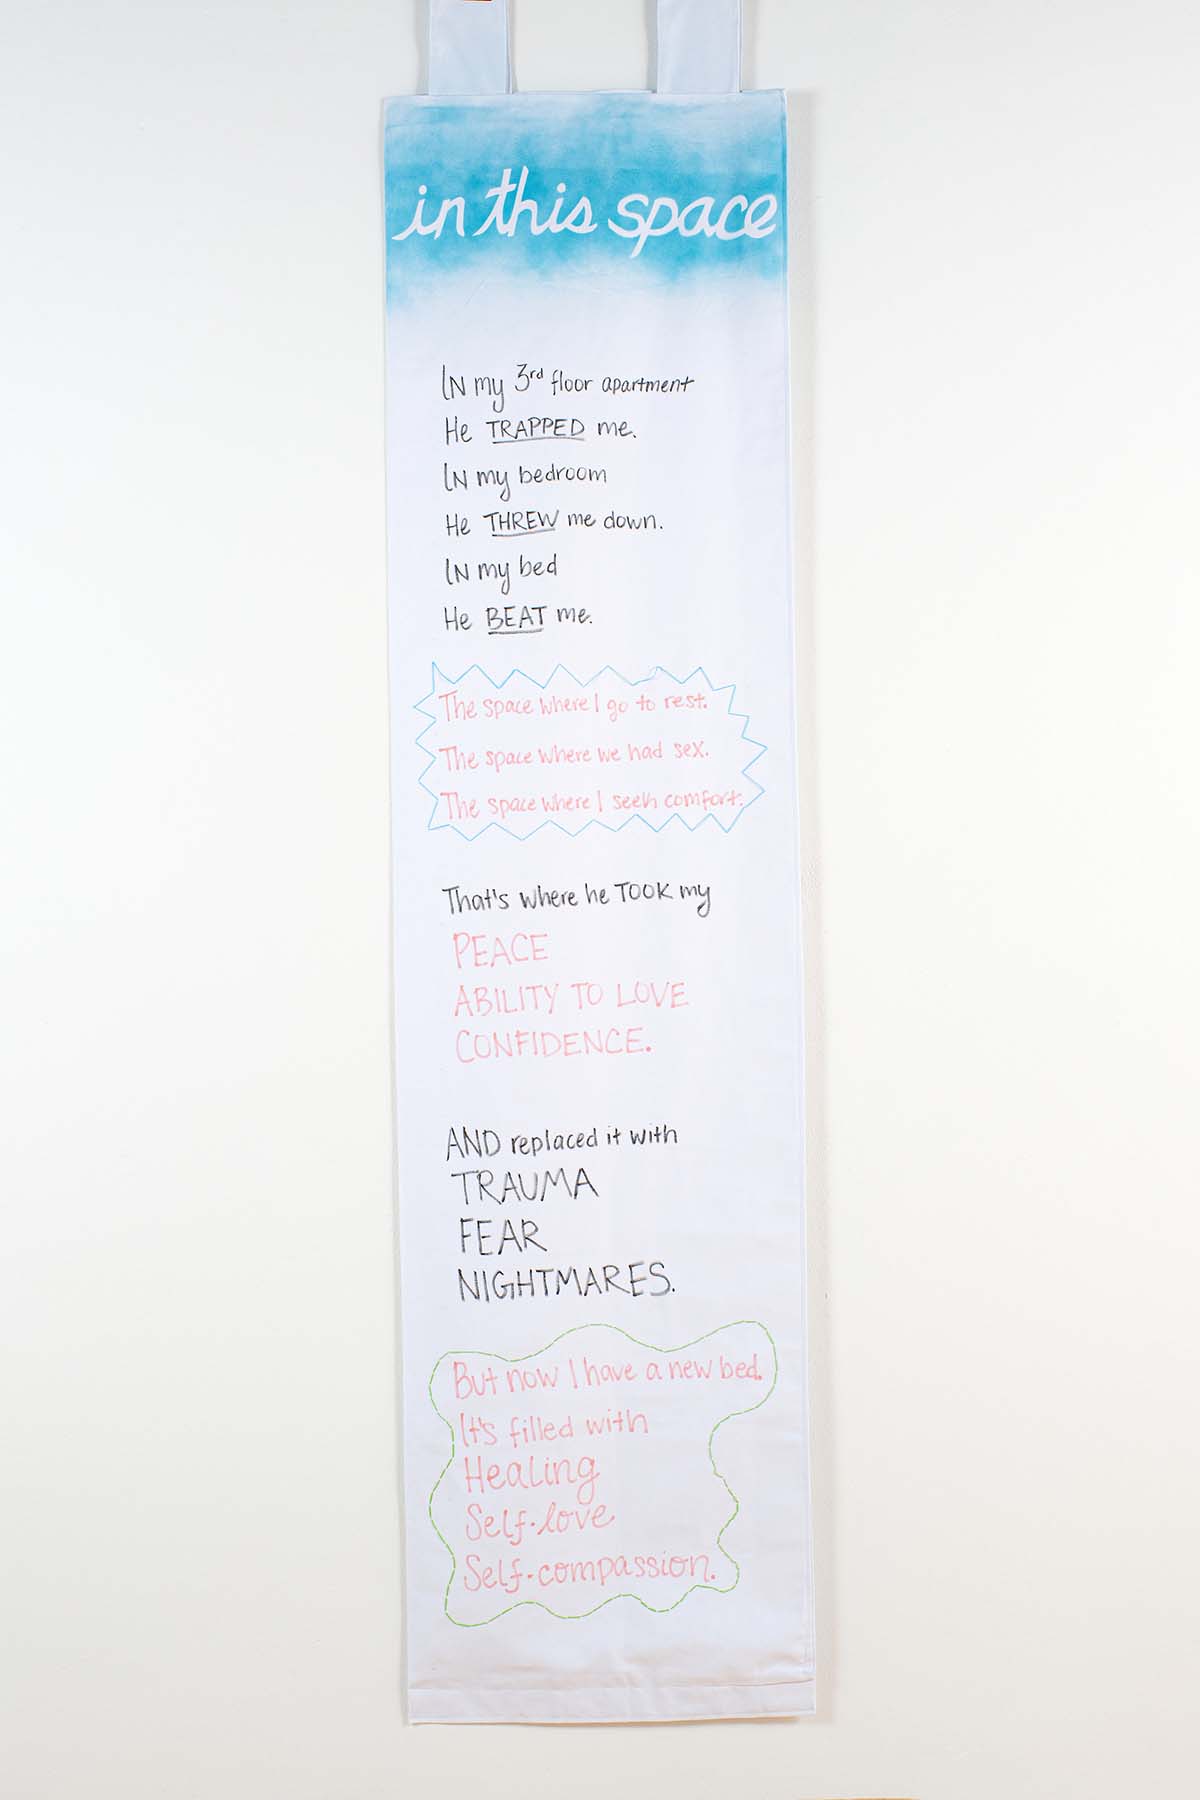 in this space
IN my 3rd floor apartment
He TRAPPED me.
IN my bedroom
He THREW me down.
IN my bed
He BEAT me.
The space where I go to rest.
The space where we had sex.
The space where I seek comfort.
That's where he TOOK my
PEACE
ABILITY TO LOVE
CONFIDENCE.
AND replaced it with
TRAUMA
FEAR
NIGHTMARES.
But now I have a new bed.
It's filled with
Healing
Self-love
Self-compassion.